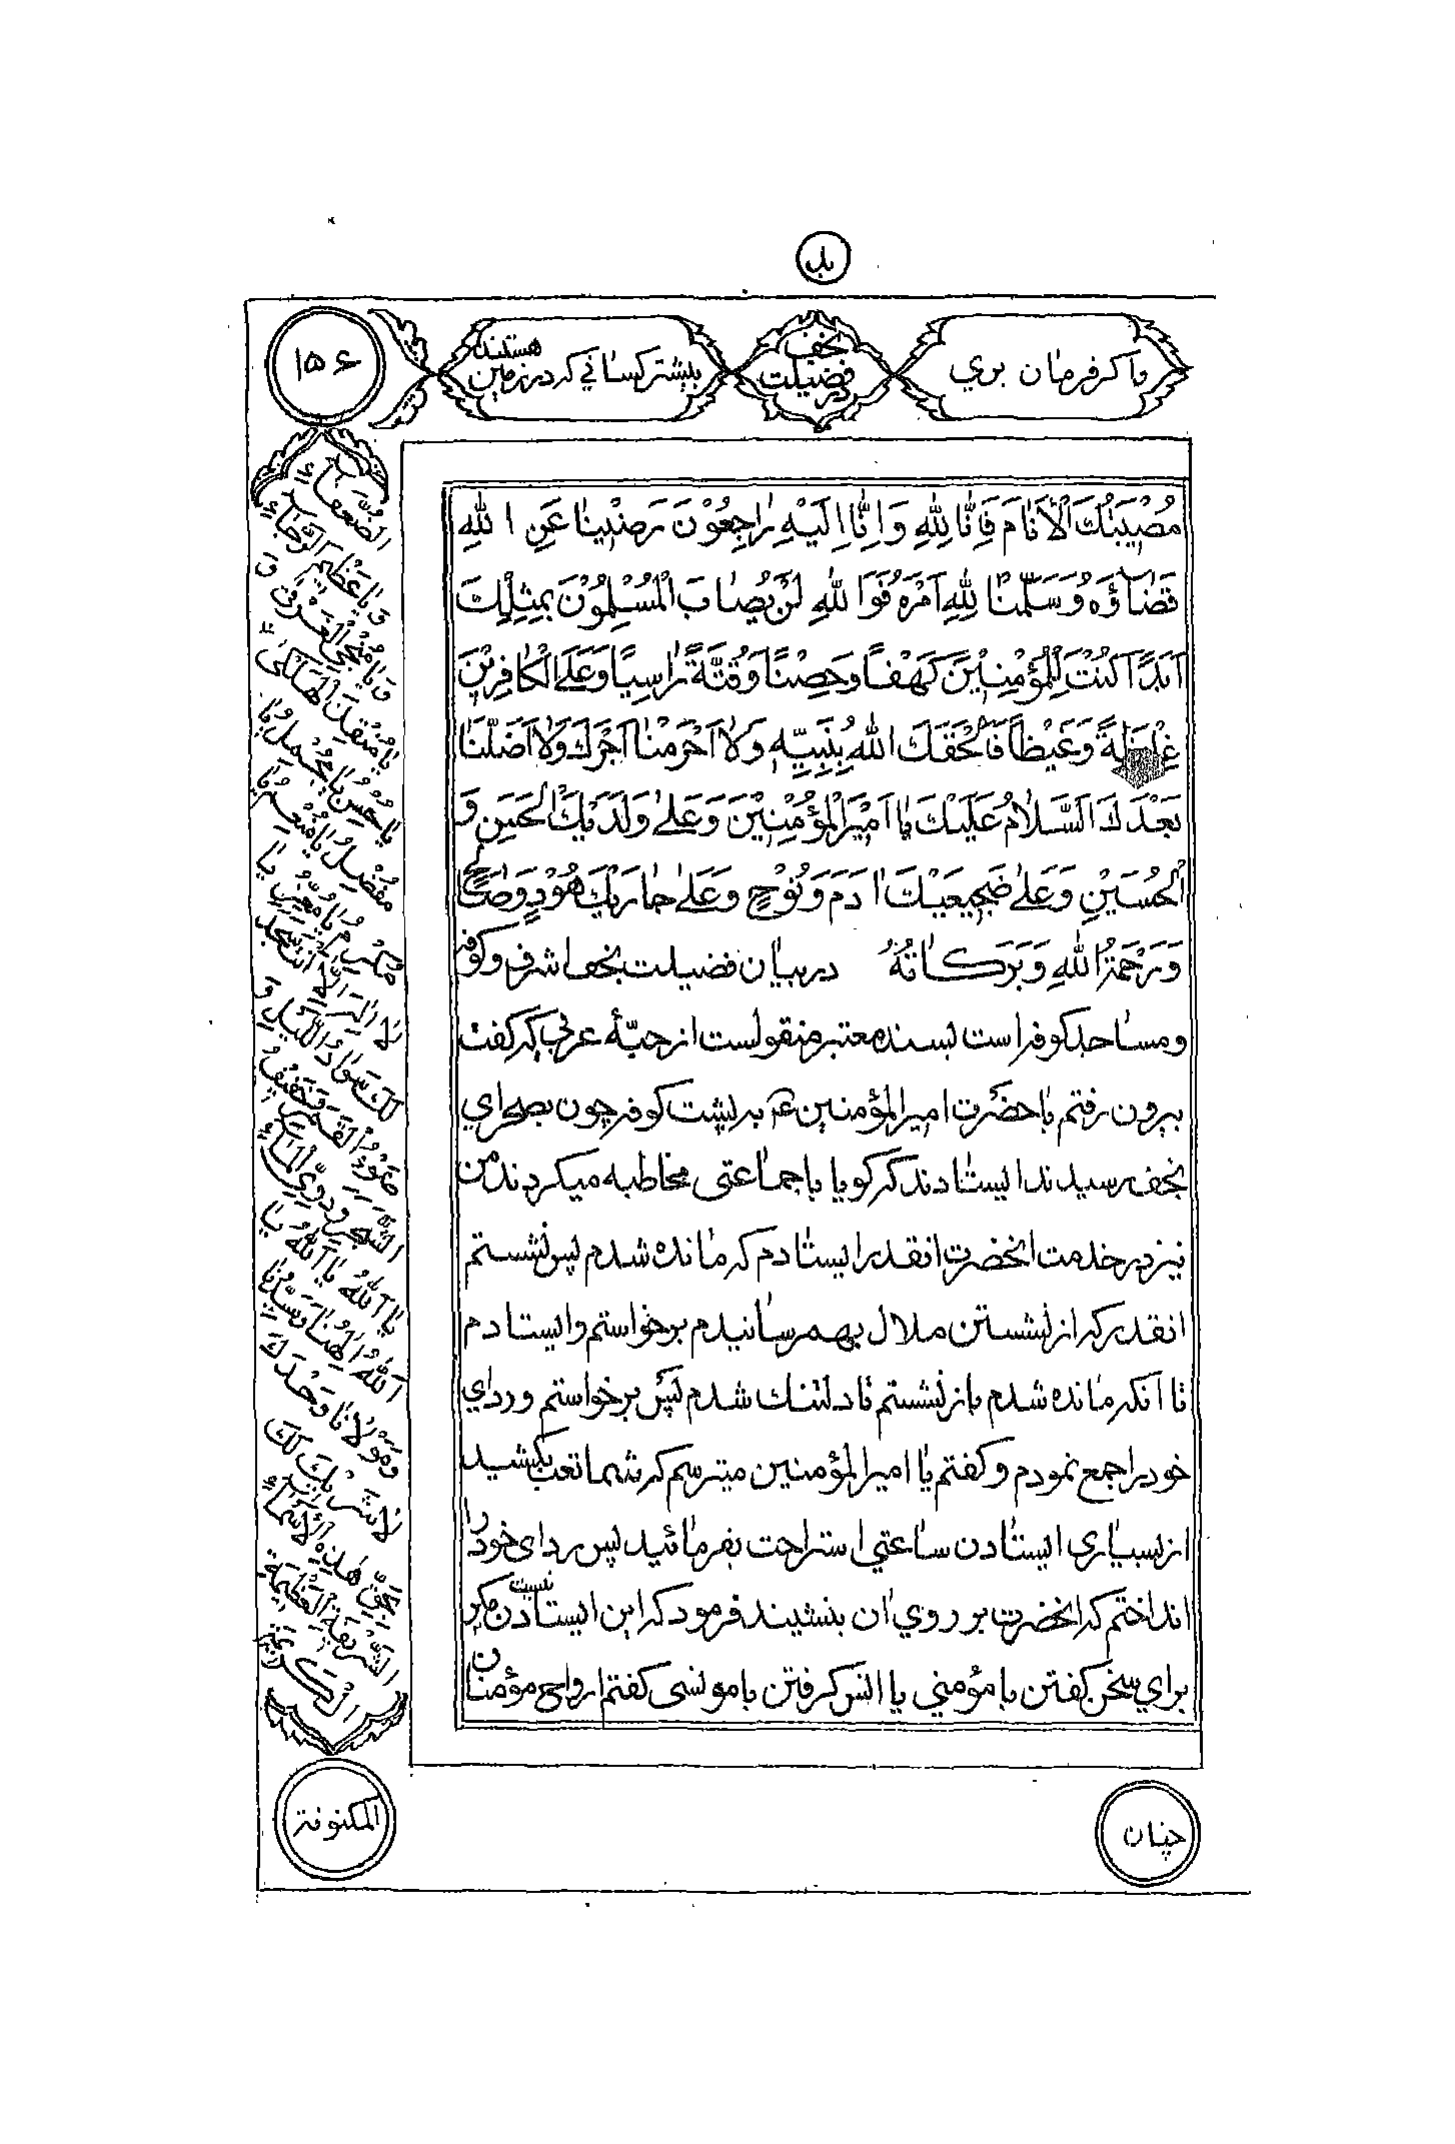 ۱۵۶
و اکر فرمان بری
در فضیلت نجف
بیشتر کسانی که در زمین هستند
مُصِیْبَتُكَ الْاَنَامَ فَاِنَّا لِلّٰهِ وَاِنَّا اِلَیْهِ رَاجِعُوْنَ رَضِیْنَا عَنِ اللّٰهِ
قَضَاؤَهُ وَسَلَّمْنَا لِلّٰهِ اَمْرَهُ فَوَاللّٰهِ لَنْ یُصَابَ الْمُسْلِمُوْنَ بِمِثْلِكَ
اَبَدًا كُنْتَ لِلْمُؤْمِنِیْنَ كَهْفًا وَحِصْنًا وَقُنَّةً رَاسِیًا وَعَلَی الْكَافِرِیْنَ
غِلْظَةً وَغَیْظًا فَاَلْحَقَكَ اللّٰهُ بِنَبِیِّهِ وَلَا اَحْرَمَنَا اَجْرَكَ وَلَا اَضَلَّنَا
بَعْدَكَ اَلسَّلَامُ عَلَیْكَ یَا اَمِیْرَ الْمُؤْمِنِیْنَ وَعَلٰی وَلَدَیْكَ الْحَسَنِ وَ
الْحُسَیْنِ وَعَلٰی ضَجِیْعَیْكَ اٰدَمَ وَنُوْحٍ وَعَلٰی جَارَیْكَ هُوْدٍ وَصَالِحٍ
وَرَحْمَةُ اللّٰهِ وَبَرَكَاتُهُ در بیان فضیلت نجف اشرف و کوفه
و مساجد کوفه است بسند معتبر منقولست از حبّهٔ عرنی که کفت
بیرون رفتم با حضرت امیر المؤمنین ع به پشت کوفه چون بصحرای
نجف رسیدند ایستادند که کویا با جماعتی مخاطبه میکردند من
نیز در خدمت انحضرت انقدر ایستادم که مانده شدم پس نشستم
انقدر که از نشستن ملال بهم رسانیدم برخواستم و ایستادم
تا آنکه مانده شدم باز نشستم تا دلتنك شدم پس برخواستم و ردای
خود را جمع نمودم و کفتم یا امیر المؤمنین میترسم که شما تعب بکشید
از بسیاری ایستادن ساعتی استراحت بفرمائید پس ردای خود را
انداختم که انحضرت بر روی ان بنشیند فرمود که این ایستادن نیست مکر
برای سخن کفتن با مؤمنی یا انس کرفتن با مونسی کفتم ارواح مؤمنان
چنان
الضُّعَفَاءِ
وَ یَا عَظِیْمَ الرَّجَاءِ
وَ یَا مُنْجِیَ الْغَرْقٰی وَ
یَا مُنْقِذَ الْهَلْكٰی
یَا مُحْسِنُ یَا مُجْمِلُ یَا
مُفْضِلُ یَا مُنْعِمُ یَا
لَا اِلٰهَ اِلَّا اَنْتَ سَجَدَ
لَكَ سَوَادُ اللَّیْلِ وَ
ضَوْءُ الْقَمَرِ وَحَفِیْفُ
الشَّجَرِ وَدَوِیُّ الْمَاءِ
یَا اَللّٰهُ یَا اَللّٰهُ یَا
اَللّٰهُ اِلٰهُنَا وَسَیِّدُنَا
وَمَوْلَانَا وَحْدَكَ
لَا شَرِیْكَ لَكَ
بِحَقِّ هٰذِهِ الْاَسْمَاءِ
الشَّرِیْفَةِ الْعَظِیْمَةِ
الْكَرِیْمَةِ
المکنونة